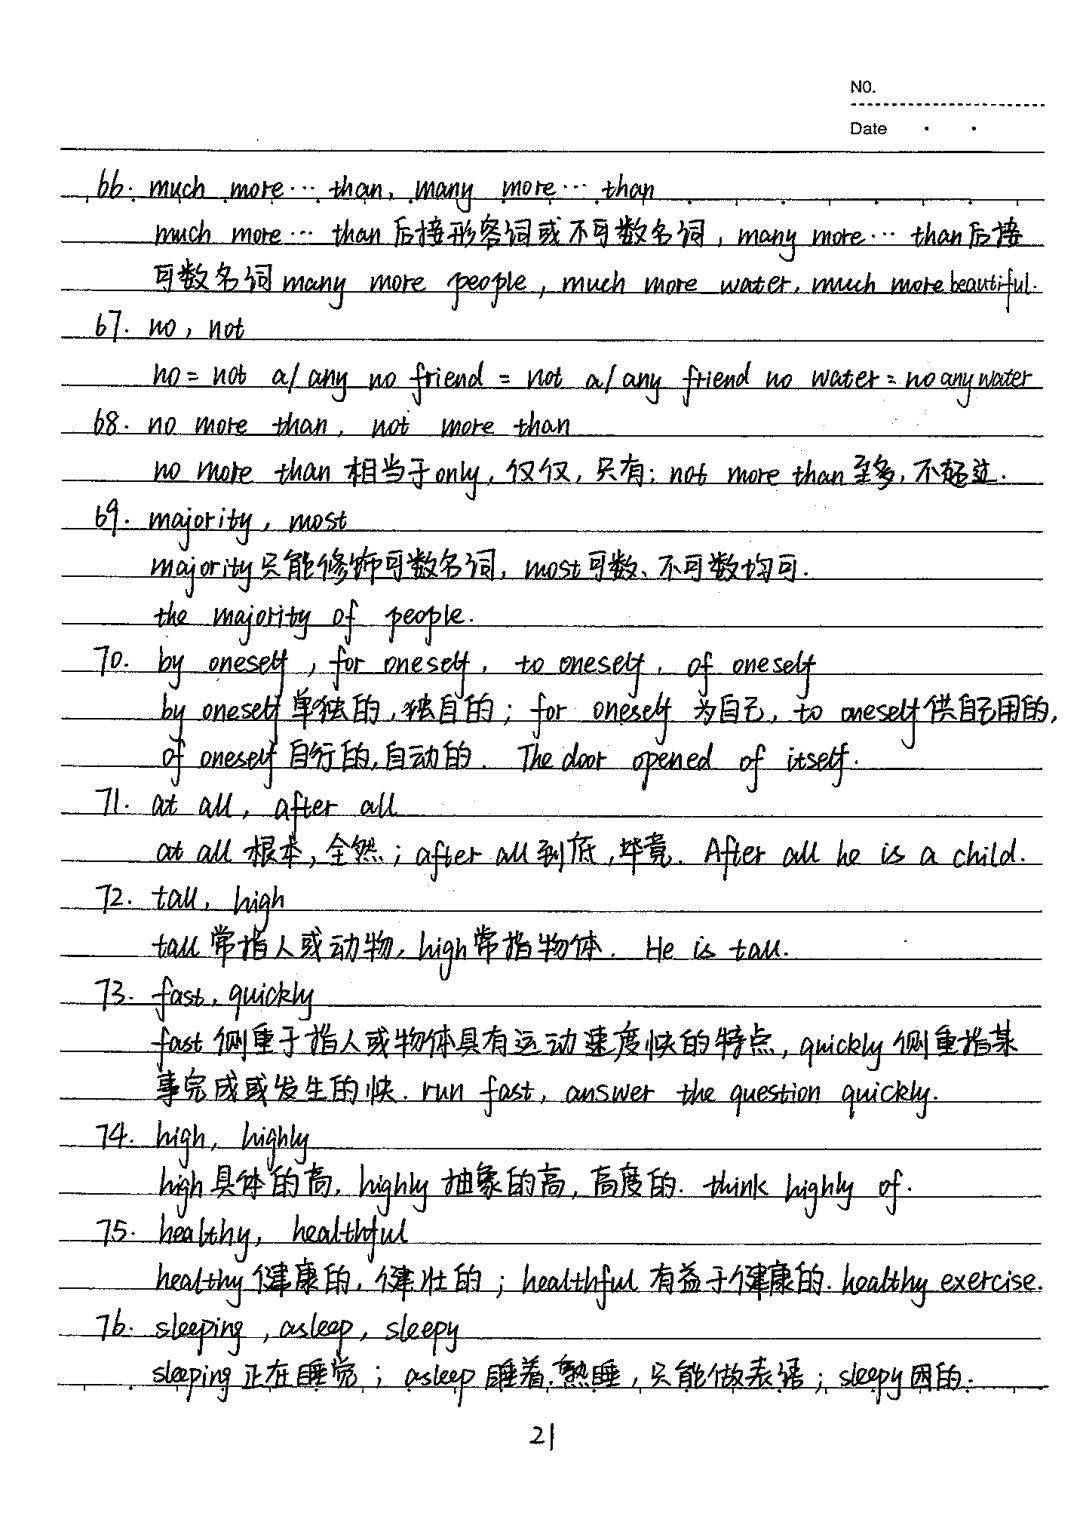 NO.
Date · ·
66. much more… than, many more… than
much more… than后接形容词或不可数名词, many more… than后接
可数名词 many more people, much more water, much more beautiful.
67. no, not
no = not a/any no friend = not a/any friend no water = no any water
68. no more than, not more than
no more than 相当于only, 仅仅, 只有; not more than至多, 不超过.
69. majority, most
majority只能修饰可数名词, most可数、不可数均可.
the majority of people.
70. by oneself, for oneself, to oneself, of oneself
by oneself单独的, 独自的; for oneself 为自己, to oneself供自己用的,
of oneself 自行的,自动的. The door opened of itself.
71. at all, after all
at all 根本, 全然; after all到底, 毕竟. After all he is a child.
72. tall, high
tall 常指人或动物, high常指物体. He is tall.
73. fast, quickly
fast 侧重于指人或物体具有运动速度快的特点, quickly 侧重指某
事完成或发生的快. run fast, answer the question quickly.
74. high, highly
high具体的高, highly 抽象的高, 高度的. think highly of.
75. healthy, healthful
healthy健康的, 健壮的; healthful 有益于健康的. healthy exercise.
76. sleeping, asleep, sleepy
sleeping正在睡觉; asleep睡着,熟睡, 只能做表语; sleepy困的.
21